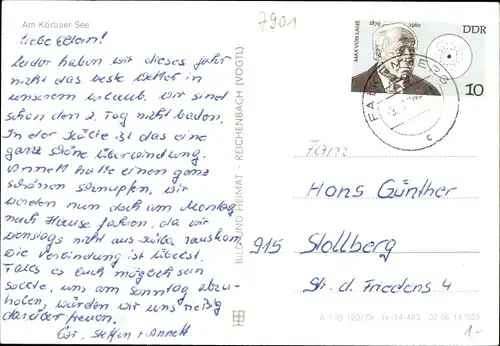 Am Körbaer See
7901
Liebe Eltern!
Leider haben wir dieses Jahr
nicht das beste Wetter in
unserem Urlaub. Wir sind
schon den 2. Tag nicht baden.
In der Kälte ist das eine
ganz schöne Überwindung.
Annett hatte einen ganz
schönen Schnupfen. Wir
werden nun doch am Montag
nach Hause fahren, da wir
dienstags nicht aus Körba rauskom.
Die Verbindung ist
Falls es Euch möglich sein
sollte, uns am Sonntag abzu-
holen, würden wir uns riesig
darüber freuen.
Steffen + Annett
BILD UND HEIMAT REICHENBACH (VOGTL)
MAX VON LAUE
1879 1960
DDR
10
Fam.
Hans Günther
915 Stollberg
Str. d. Friedens 4
A 1 B 123/79 IV-14-483 02 06 14 033
1.-